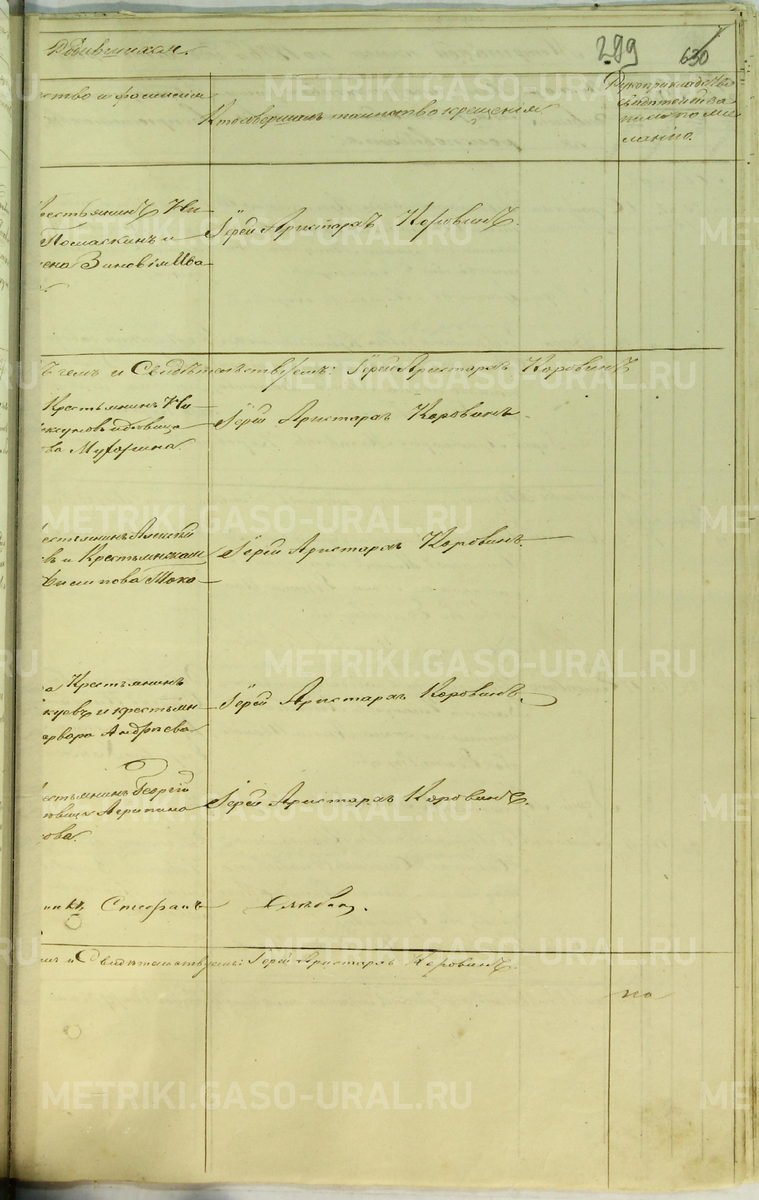 родившихся.
289
630
ство и фамилія
Кто совершалъ таинство крещенія
Рукоприкладство
свидѣтелей за
писи по же
ланію.
рестьянинъ Ни
Помаскинъ и
Зиновія Ива
Іерей Аристархъ Коровинъ.
чемъ и Свидѣтельствуемъ: Іерей Аристархъ Коровинъ
Крестьянинъ Ни
вдовица
ова
Іерей Аристархъ Коровинъ
рестьянинъ Алексѣй
въ и Крестьянская
Токо
Іерей Аристархъ Коровинъ.
Крестьянинъ
и крестьян
арвара Андрѣева
Іерей Аристархъ Коровинъ.
рестьянинъ Георгій
Агрипина
кова.
Іерей Аристархъ Коровинъ.
Стефанъ
Словцовъ.
мъ и Свидѣтельствуемъ: Іерей Аристархъ Коровинъ.
по
METRIKI.GASO-URAL.RU